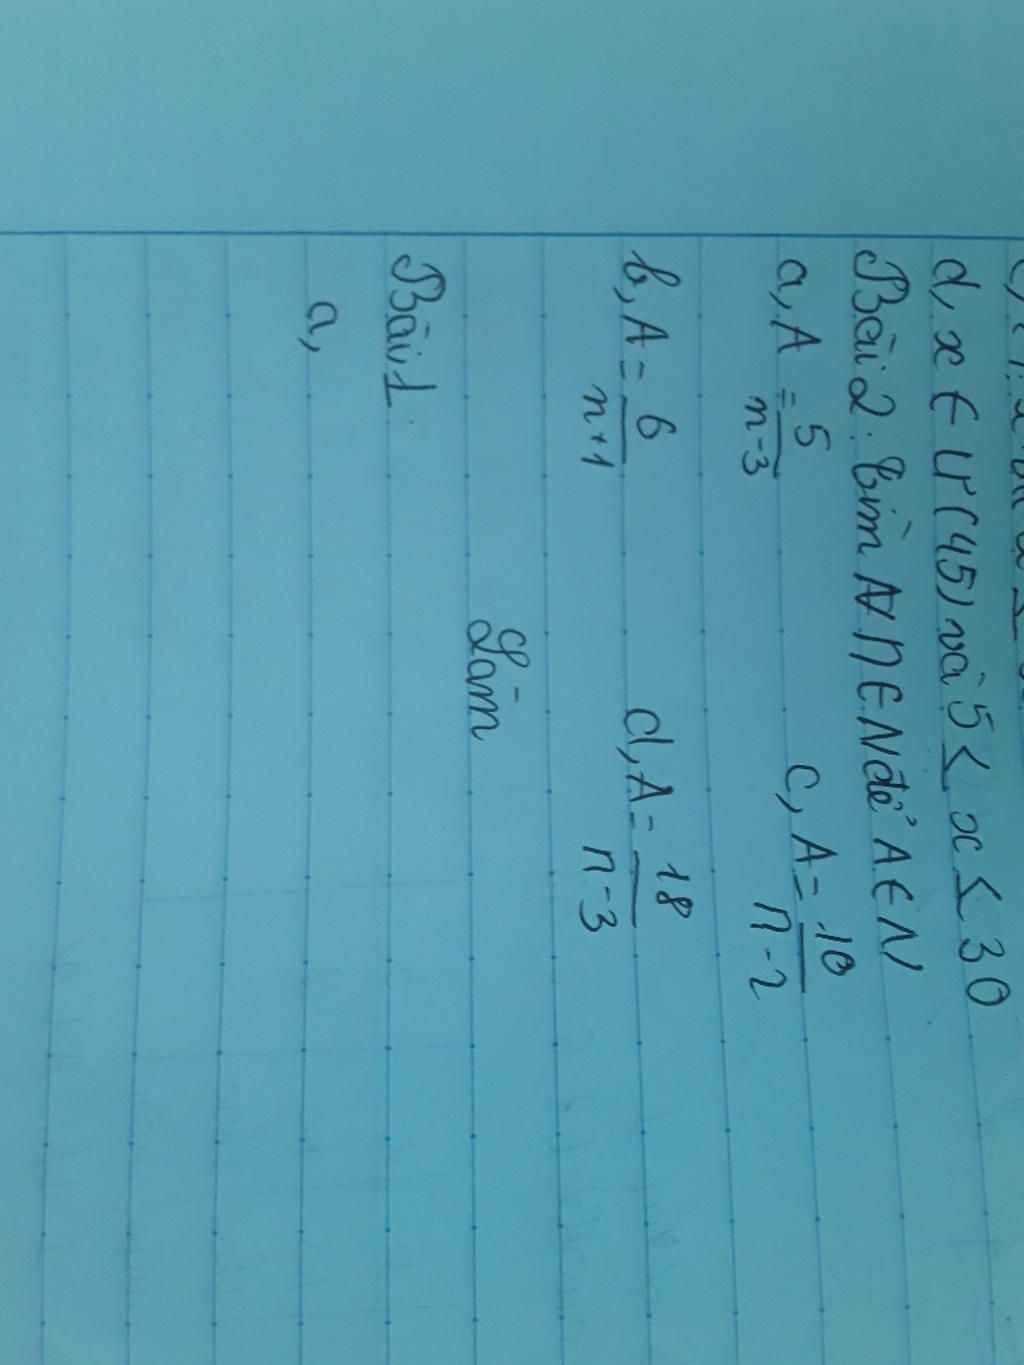 d, x ∈ Ư(45) và 5 ≤ x ≤ 30
Bài 2: Tìm n ∈ N để A ∈ N
a, A = 5/n-3 c, A = 10/n-2
b, A = 6/n+1 d, A = 18/n-3
Làm
Bài 1.
a,